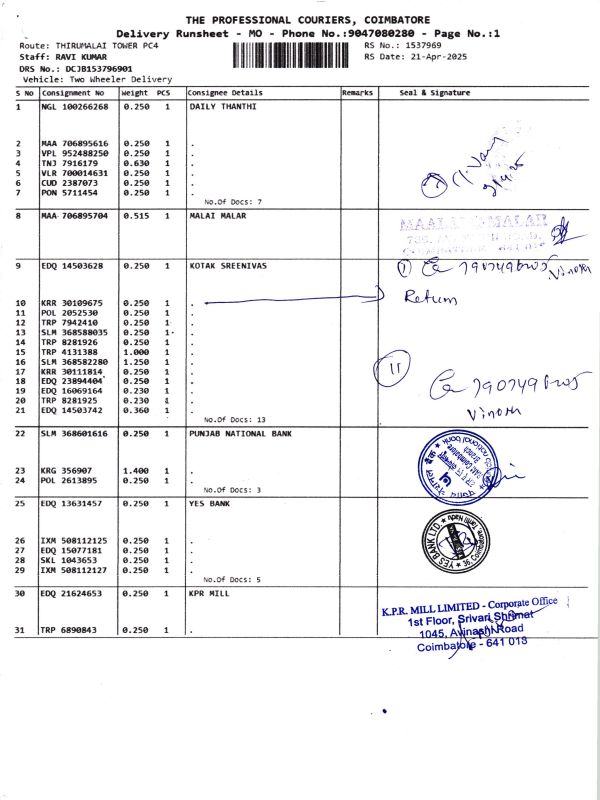 THE PROFESSIONAL COURIERS, COIMBATORE
Delivery Runsheet - MO - Phone No.:9047080280 - Page No.:1
Route: THIRUMALAI TOWER PC4 RS No.: 1537969
Staff: RAVI KUMAR RS Date: 21-Apr-2025
DRS No.: DCJB153796901
Vehicle: Two Wheeler Delivery
S No Consignment No Weight PCS Consignee Details Remarks Seal & Signature
1 NGL 100266268 0.250 1 DAILY THANTHI
2 MAA 706895616 0.250 1 .
3 VPL 952488250 0.250 1 .
4 TNJ 7916179 0.630 1 .
5 VLR 700014631 0.250 1 .
6 CUD 2387073 0.250 1 .
7 PON 5711454 0.250 1 .
No.Of Docs: 7
8 MAA 706895704 0.515 1 MALAI MALAR
9 EDQ 14503628 0.250 1 KOTAK SREENIVAS
Vinoth
10 KRR 30109675 0.250 1 . Return
11 POL 2052530 0.250 1 .
12 TRP 7942410 0.250 1 .
13 SLM 368588035 0.250 1 .
14 TRP 8281926 0.250 1 .
15 TRP 4131388 1.000 1 .
16 SLM 368582280 1.250 1 .
17 KRR 30111814 0.250 1 . 11
18 EDQ 23894404 0.250 1 .
19 EDQ 16069164 0.230 1 .
20 TRP 8281925 0.230 1 .
21 EDQ 14503742 0.360 1 . Vinoth
No.Of Docs: 13
22 SLM 368601616 0.250 1 PUNJAB NATIONAL BANK
23 KRG 356907 1.400 1 .
24 POL 2613895 0.250 1 .
No.Of Docs: 3
25 EDQ 13631457 0.250 1 YES BANK
YES BANK LTD. * 36, Coimbatore, Tamil Nadu
26 IXM 508112125 0.250 1 .
27 EDQ 15077181 0.250 1 .
28 SKL 1043653 0.250 1 .
29 IXM 508112127 0.250 1 .
No.Of Docs: 5
30 EDQ 21624653 0.250 1 KPR MILL
K.P.R. MILL LIMITED - Corporate Office
1st Floor, Srivari Shrimat
1045, Avinashi Road
Coimbatore - 641 018
31 TRP 6890843 0.250 1 .